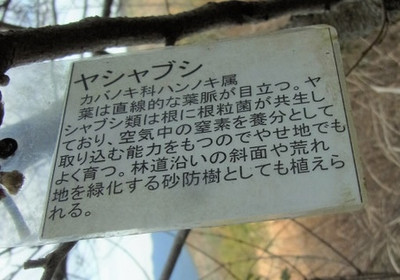 ヤシャブシ
カバノキ科ハンノキ属
葉は直線的な葉脈が目立つ。ヤ
シャブシ類は根に根粒菌が共生し
ており、空気中の窒素を養分として
取り込む能力をもつのでやせ地でも
よく育つ。林道沿いの斜面や荒れ
地を緑化する砂防樹としても植えら
れる。